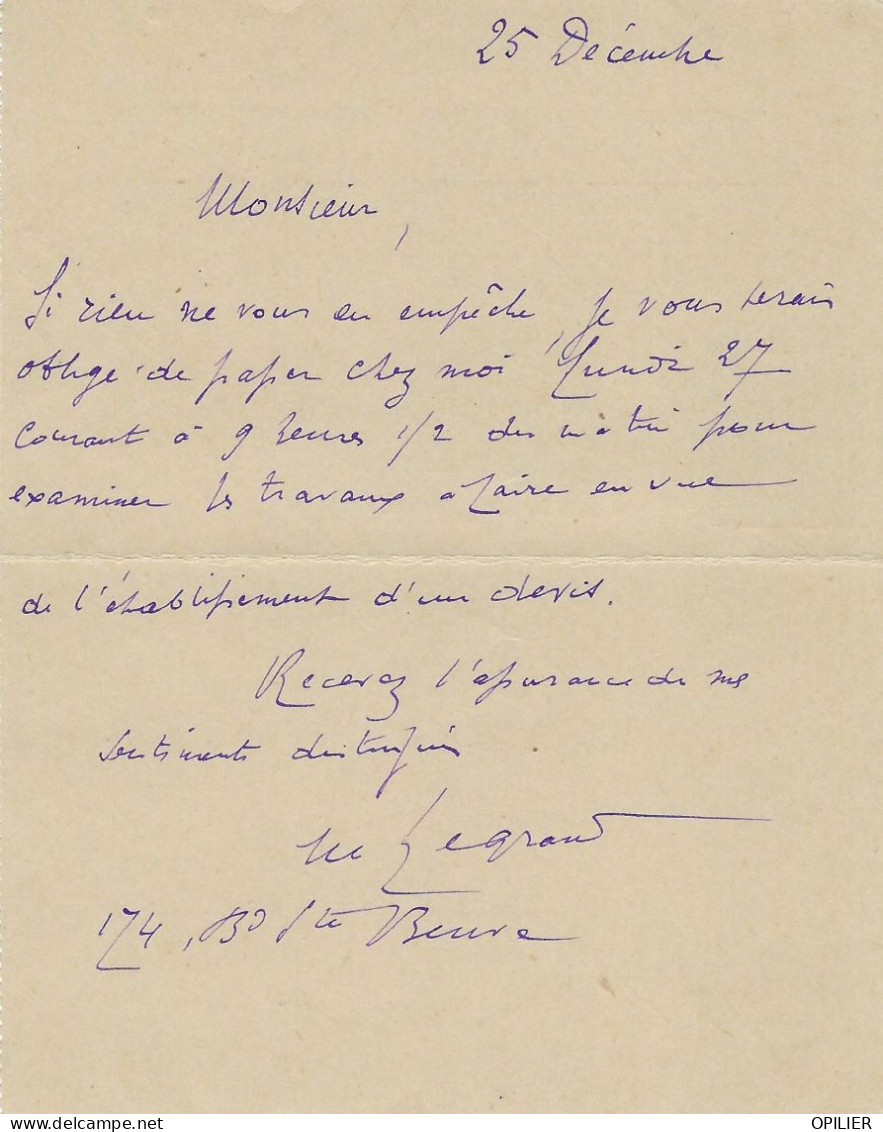 25 Décembre
Monsieur,
Si rien ne vous en empêche, je vous serais
obligé de passer chez moi Lundi 27
courant à 9 heures 1/2 du matin pour
examiner les travaux à faire en vue
de l'établissement d'un devis.
Recevez l'assurance de mes
sentiments distingués
M Legrand
174, Bd Ste Beuve
delcampe.net
OPILIER